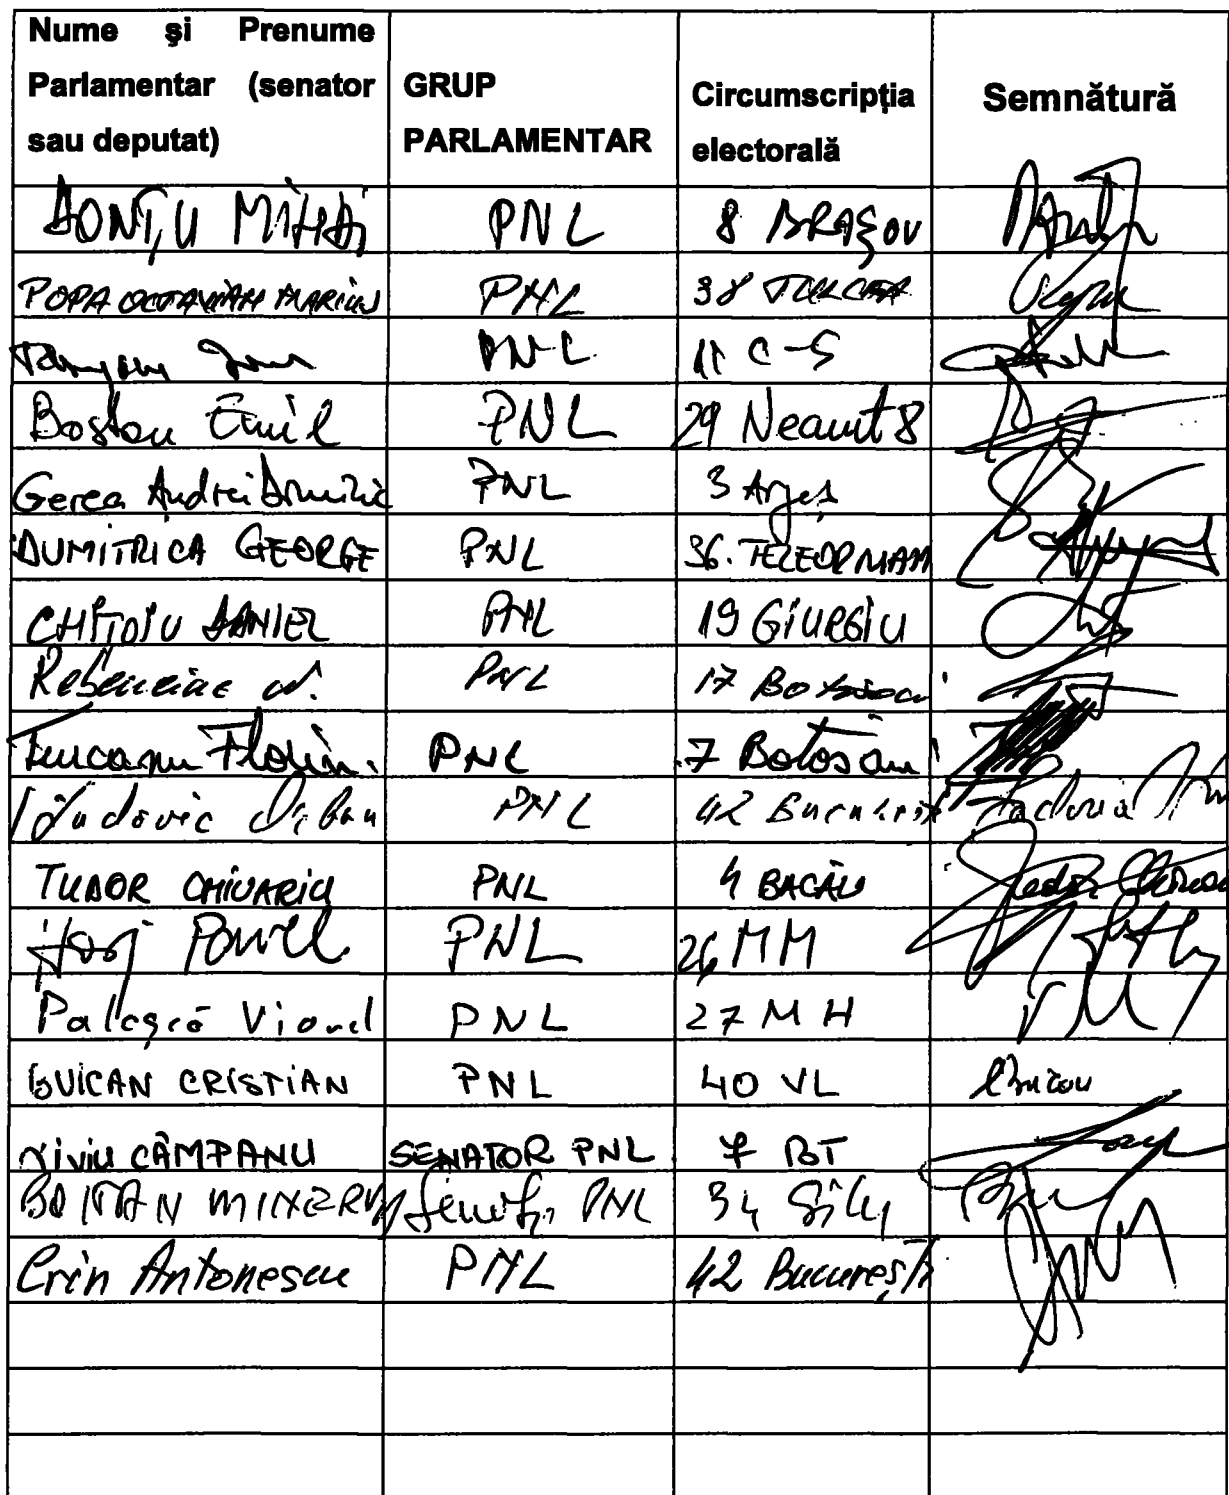 Nume şi Prenume
Parlamentar (senator
sau deputat)
GRUP
PARLAMENTAR
Circumscripţia
electorală
Semnătură
DONȚU MIHAI PNL 8 BRAȘOV
POPA OCTAVIAN MARIUS PNL 38 TULCEA
PNL 11 C-S
Bostan Emil PNL 29 Neamt 8
Gerea Andrei Dominic PNL 3 Argeș
DUMITRICA GEORGE PNL 36. TELEORMAN
CHIȚOIU DANIEL PNL 19 GIURGIU
Rebenciuc N. PNL 17
Turcanu Florin. PNL 7 Botosani
Ludovic Orban PNL 42 Bucuresti
TUDOR CHIUARIU PNL 4 BACĂU Tudor Chiuariu
PNL 26 MM
Palașcă Viorel PNL 27 MH
BUICAN CRISTIAN PNL 40 VL Buican
Liviu CÂMPANU SENATOR PNL 7 BT
BOITAN MINERVA PNL 34
Crin Antonescu PNL 42 București